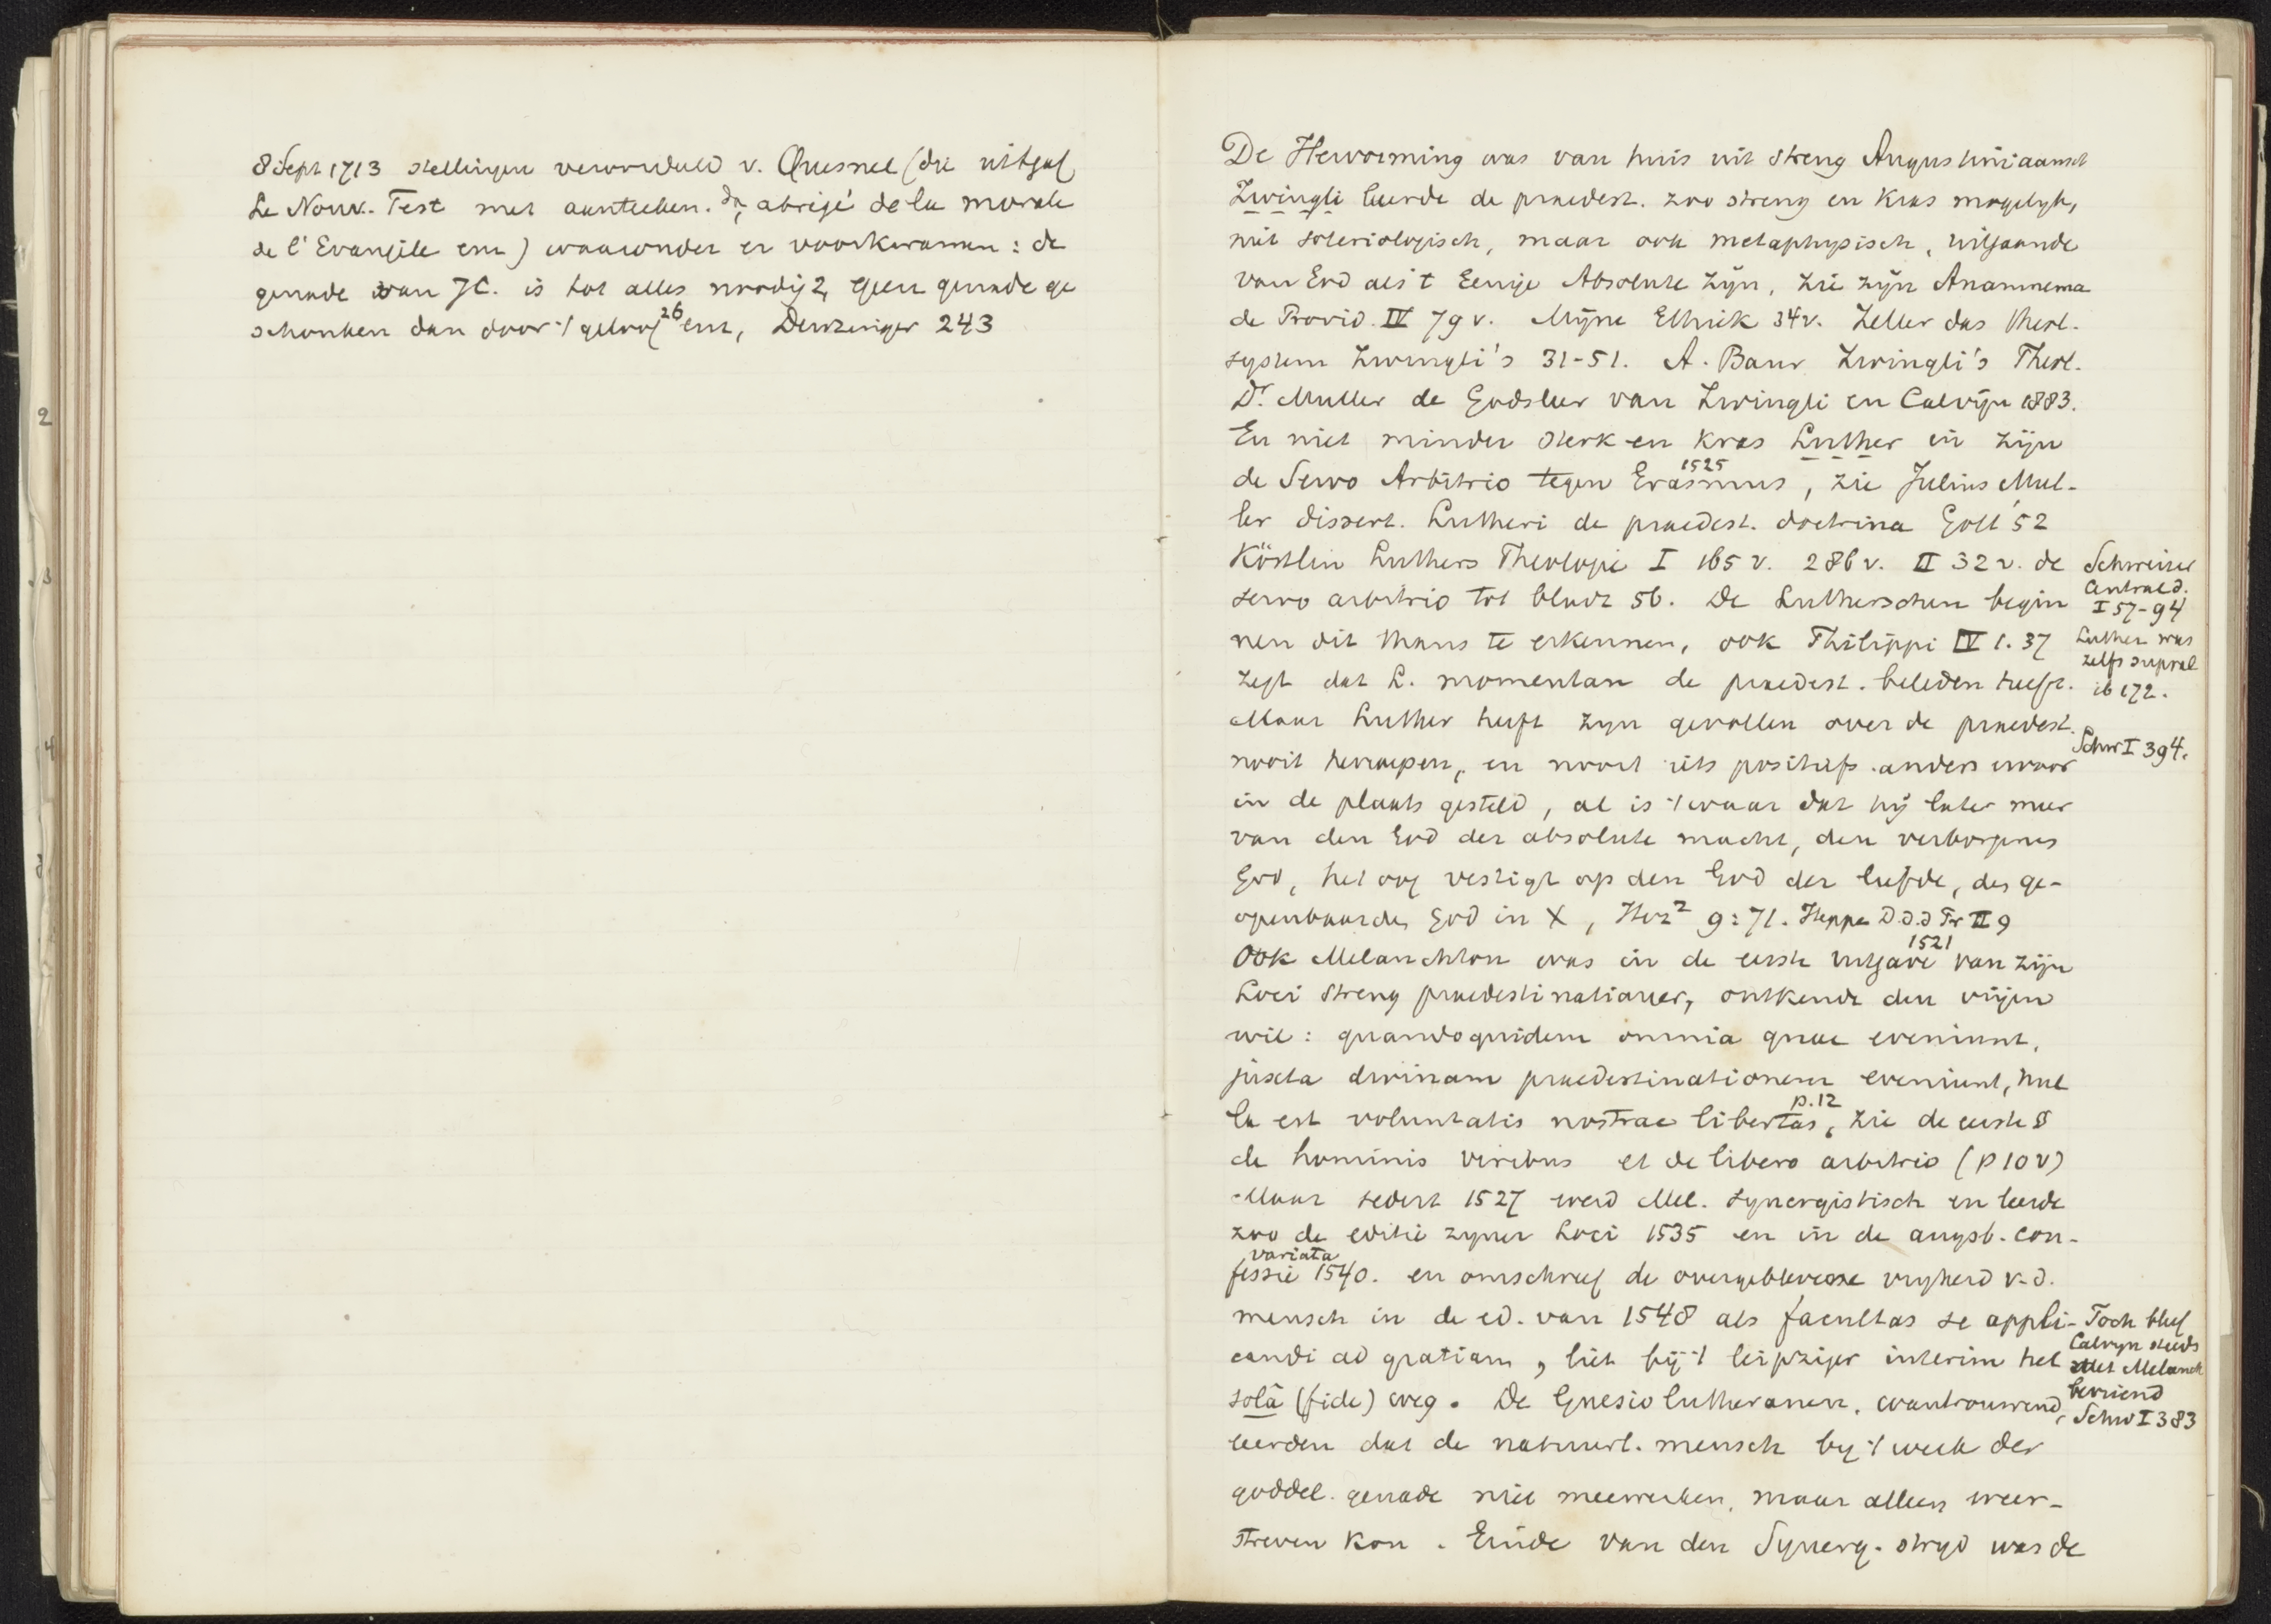 8 Sept 1713 stellingen veroordeeld v. Quesnel (die uitgaf
Le Nouv. Test met aanteeken. abrégé de la morale
de l'Evangile enz) waaronder er voorkwamen: de
genade van JC. is tot alles noodig 2, geen genade ge
schonken dan door 't geloof 26 enz, Denzinger 243
De Hervorming was van huis uit streng Augustiniaansch
Zwingli leerde de praedest. zoo streng en kras mogelyk,
niet soteriologisch, maar ook metaphysisch, uitgaande
van God als 't Eenige Absolute zijn, zie zijn Anamnema
de Provid. IV 79 v. Mijne Ethiek 34v. Zeller das theol.
system Zwingli's 31-51. A. Baur Zwingli's Theol.
Dr. Muller de Godsleer van Zwingli en Calvijn 1883.
En niet minder sterk en kras Luther in zijn
1525
de Servo Arbitrio tegen Erasmus, zie Julius Mul-
ler dissert. Lutheri de praedest. doctrina Gott '52
Köstlin Luthers Theologie I 165 v. 286 v. II 32 v. de
servo arbitrio tot bladz 56. De Lutherschen begin
nen dit thans te erkennen, ook Philippi IV 1. 37
zegt dat L. momentan de praedest. beleden heeft.
Schweizer
Centrald.
I 57-94
Luther was
zelfs supral
ib 172.
Maar Luther heeft zyn gevoelen over de praedest.
nooit herroepen, en nooit iets positiefs anders ervoor
Schw I 394.
in de plaats gesteld, al is 't waar dat hij later meer
van den God der absolute macht, den verborgenen
God, het oog vestigt op den God der liefde, des ge-
openbaarden God in X, Herz2 9:71. Heppe D.d.d Pr II 9
1521
Ook Melanchton was in de eerste uitgave van zijn
Loci streng praedestinatianer, ontkende den vrijen
wil: quandoquidem omnia quae eveniunt,
juxta divinam praedestinationem eveniunt, nul
p. 12
la est voluntatis nostrae libertas, zie de eerste §
de hominis viribus et de libero arbitrio (p 10 v)
Maar sedert 1527 werd Mel. synergistisch en leerde
zoo de editie zyner Loci 1535 en in de augsb. con-
variata
fessie 1540. en omschreef de overgeblevene vryheid v. d.
mensch in de ed. van 1548 als facultas se appli-
candi ad gratiam, liet bij 't leipziger interim het
solâ (fide) weg. De Gnesiolutheranen, wantrouwend,
Toch bleef
Calvyn steeds
met Melanch
bevriend
Schw I 383
leerden dat de natuurl. mensch by 't werk der
goddel. genade niet meewerken, maar alleen weer-
streven kon. Einde van den Synerg. stryd was de